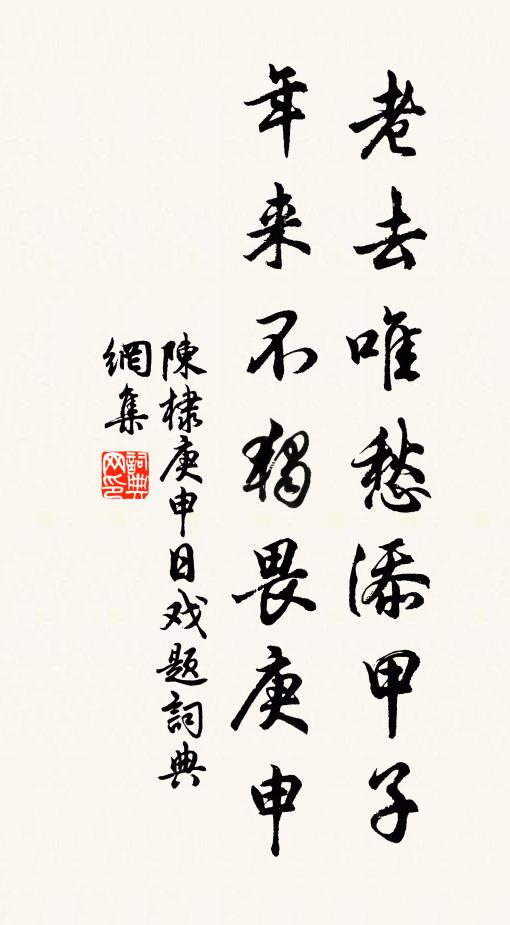 老去唯愁添甲子
年来不獨畏庚申
陳棣庚申日戏题詞典
網集
詞典網印